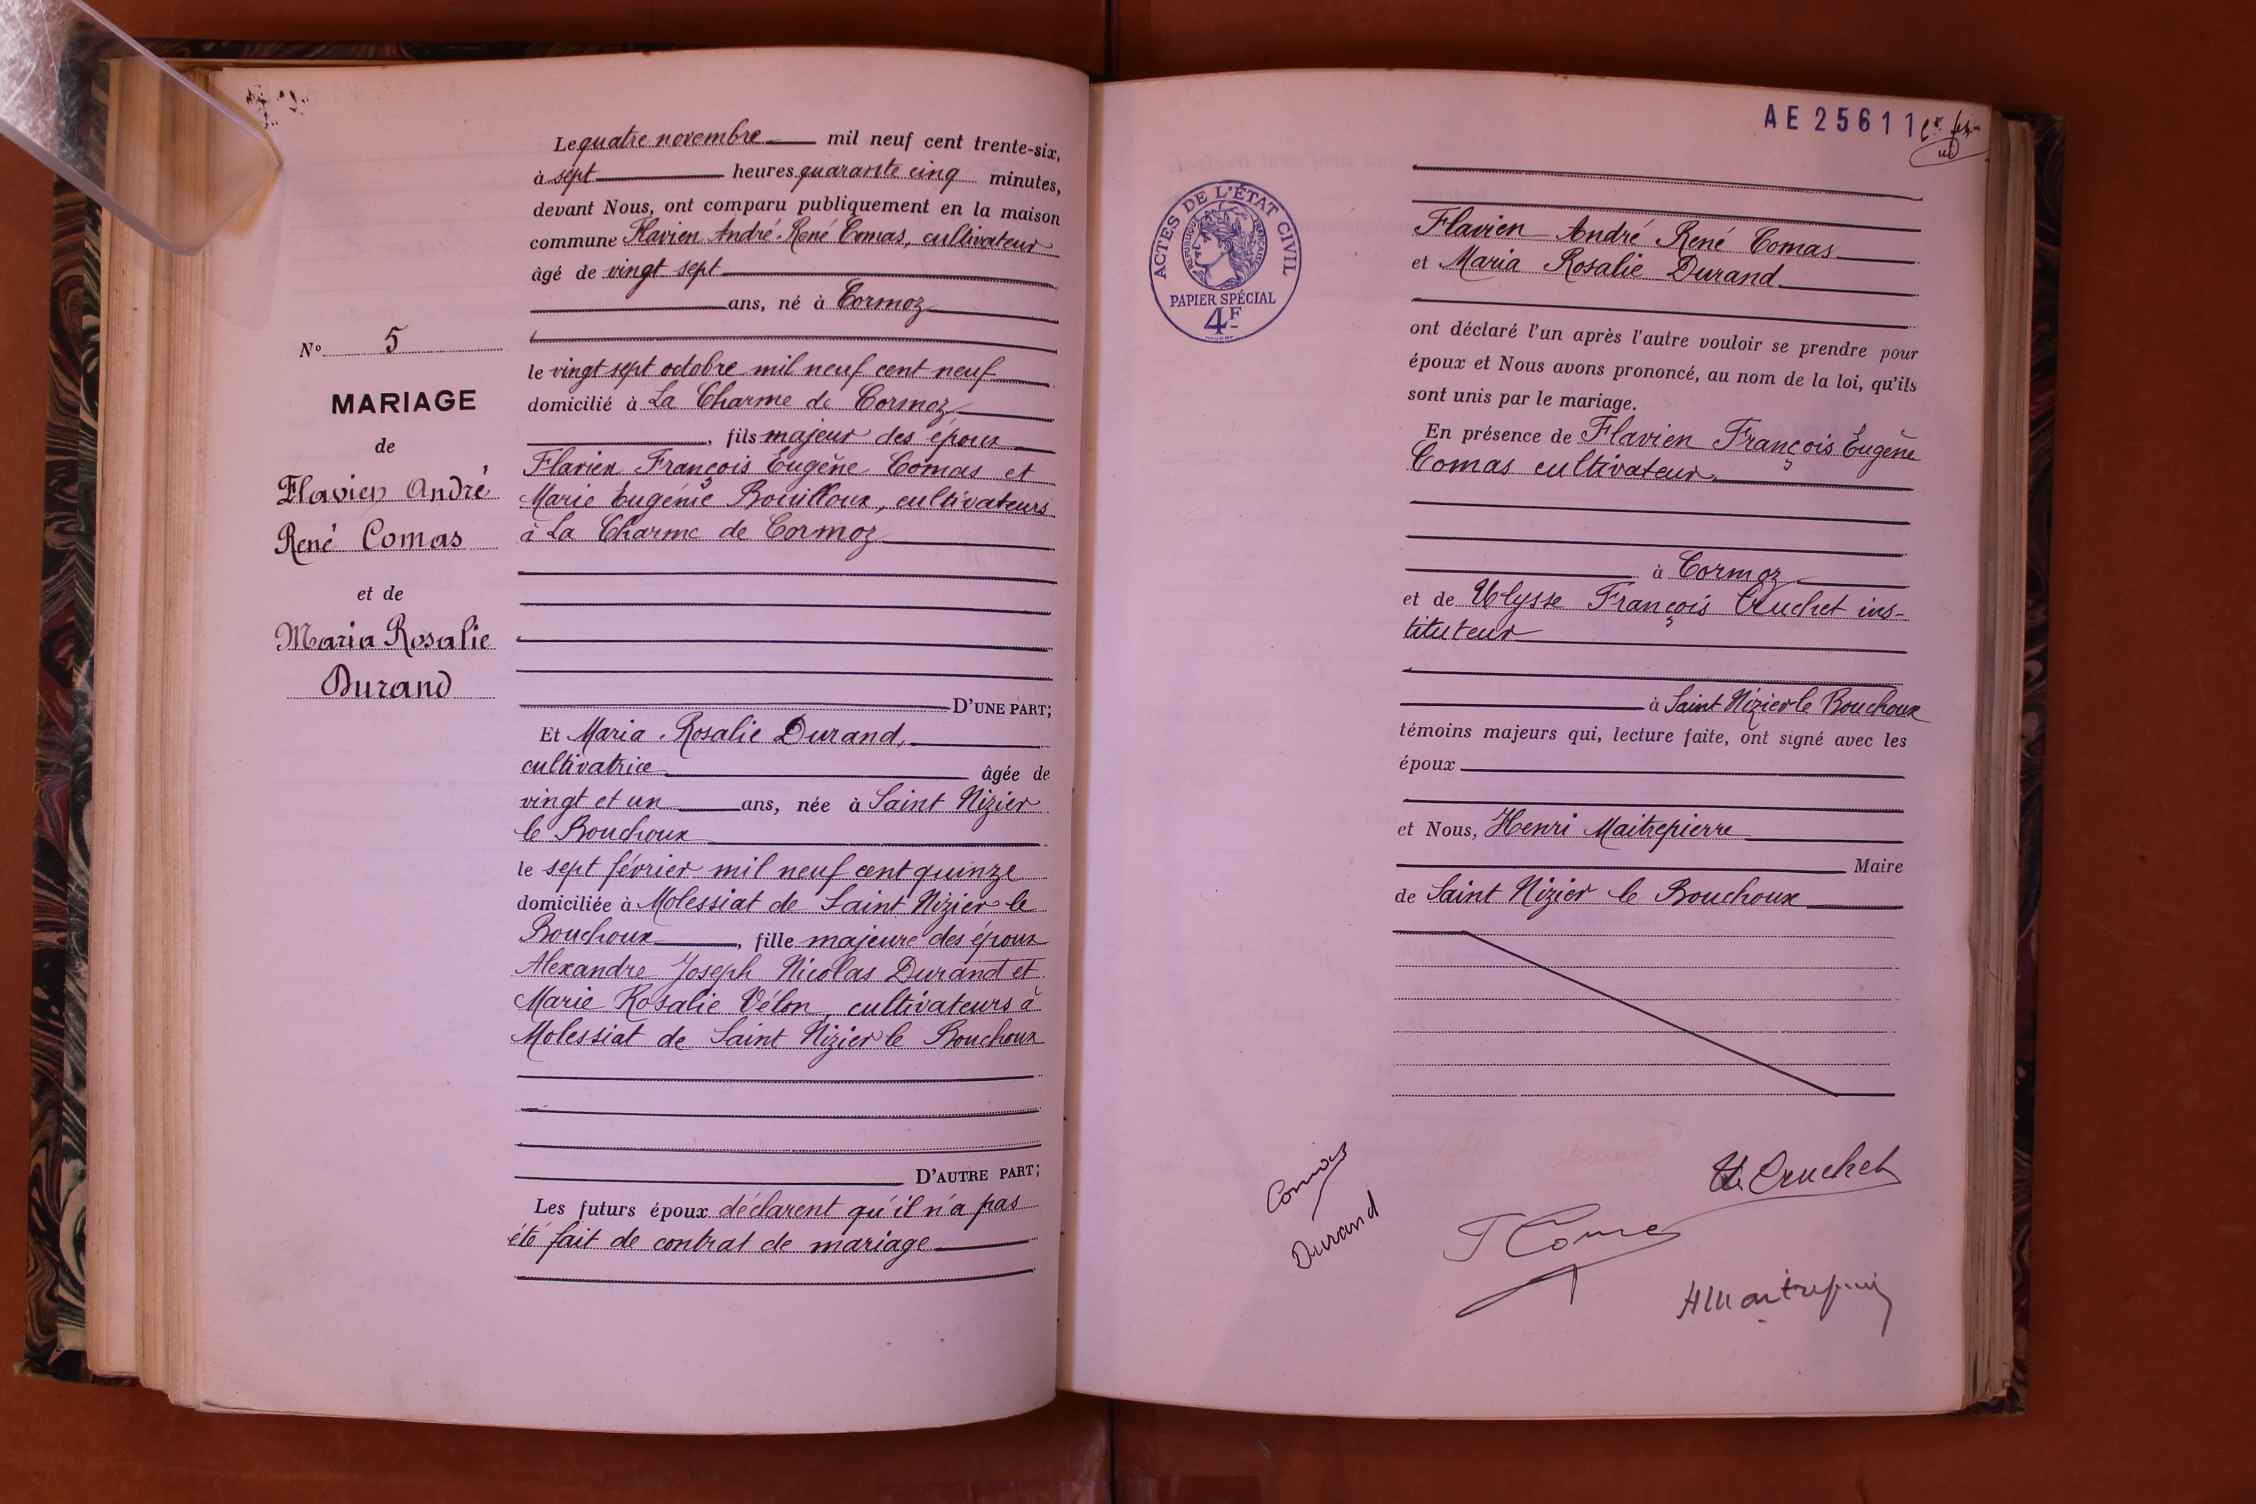 Le quatre novembre mil neuf cent trente-six,
à sept heures quarante cinq minutes,
devant Nous, ont comparu publiquement en la maison
commune Flavien André René Comas, cultivateur
âgé de vingt sept
ans, né à Cormoz
le vingt sept octobre mil neuf cent neuf
domicilié à La Charme de Cormoz
, fils majeur des époux
Flavien François Eugène Comas et
Marie Eugénie Bouilloux, cultivateurs
à La Charme de Cormoz
D'UNE PART;
Nº 5
MARIAGE
de
Flavien André
René Comas
et de
Maria Rosalie
Durand
Et Maria Rosalie Durand,
cultivatrice âgée de
vingt et un ans, née à Saint Nizier
le Bouchoux
le sept février mil neuf cent quinze
domiciliée à Molessiat de Saint Nizier le
Bouchoux, fille majeure des époux
Alexandre Joseph Nicolas Durand et
Marie Rosalie Vélon, cultivateurs à
Molessiat de Saint Nizier le Bouchoux
D'AUTRE PART;
Les futurs époux déclarent qu'il n'a pas
été fait de contrat de mariage
AE 25611
ACTES DE L'ÉTAT CIVIL
RÉPUBLIQUE FRANÇAISE
PAPIER SPÉCIAL
4F
Flavien André René Comas
et Maria Rosalie Durand
ont déclaré l'un après l'autre vouloir se prendre pour
époux et Nous avons prononcé, au nom de la loi, qu'ils
sont unis par le mariage.
En présence de Flavien François Eugène
Comas cultivateur
à Cormoz
et de Ulysse François Cruchet ins-
tituteur
à Saint Nizier le Bouchoux
témoins majeurs qui, lecture faite, ont signé avec les
époux
et Nous, Henri Maitrepierre
Maire
de Saint Nizier le Bouchoux
Comas
Durand
U. Cruchet
F Comas
H Maitrepierre